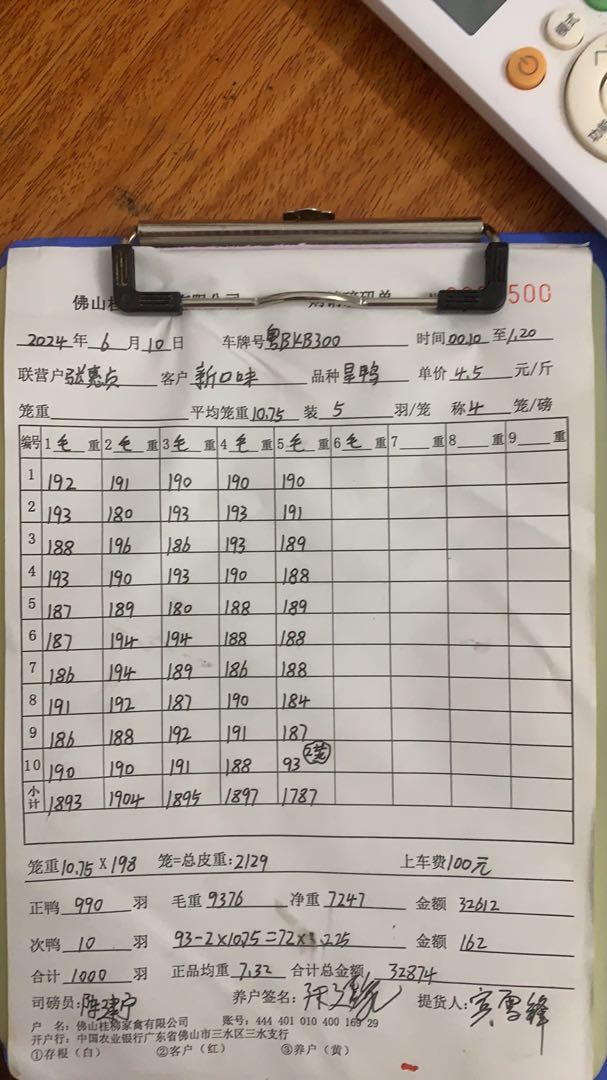 模式
功能
佛山桂 500
2024年 6月10日 车牌号 粤BKB300 时间 00.10 至 1.20
联营户 张惠贞 客户 新口味 品种 旱鸭 单价 4.5 元/斤
笼重 平均笼重 10.75 装 5 羽/笼 称 4 笼/磅
编号 1 毛 重 2 毛 重 3 毛 重 4 毛 重 5 毛 重 6 毛 重 7 重 8 重 9 重
1 192 191 190 190 190
2 193 180 193 193 191
3 188 196 186 193 189
4 193 190 193 190 188
5 187 189 180 188 189
6 187 194 194 188 188
7 186 194 189 186 188
8 191 192 187 190 184
9 186 188 192 191 187
10 190 190 191 188 93
小计 1893 1904 1895 1897 1787
笼重 10.75 X 198 笼=总皮重: 2129 上车费100元
正鸭 990 羽 毛重 9376 净重 7247 金额 32612
次鸭 10 羽 93-2×10.75=72× 2.25 金额 162
合计 1000 羽 正品均重 7.32 合计总金额 32874
司磅员: 陈建宁 养户签名: 提货人: 宾雪锋
户 名: 佛山桂柳家禽有限公司 账号: 444 401 010 400 169 29
开户行: 中国农业银行广东省佛山市三水区三水支行
①存根（白） ②客户（红） ③养户（黄）